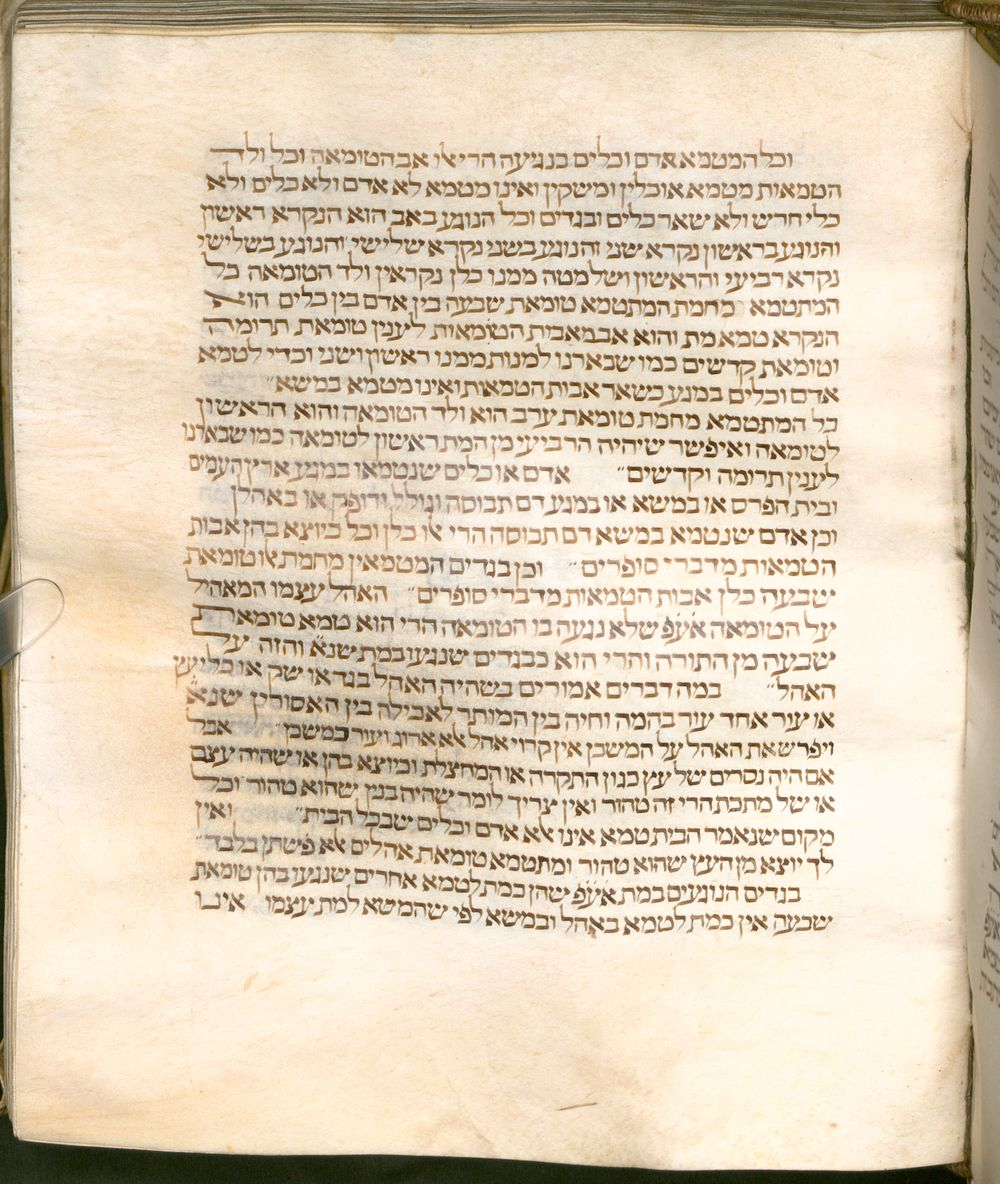 וכל המטמא אדם וכלים בנגיעה הרי אלו אב הטומאה וכל ולד
הטמאות מטמא אוכלין ומשקין ואינו מטמא לא אדם ולא כלים ולא
כלי חריש ולא שאר כלים ובגדים וכל הנוגע באב הוא הנקרא ראשון
והנוגע בראשון נקרא שני והנוגע בשני נקרא שלישי והנוגע בשלישי
נקרא רביעי והראשון ושלמטה ממנו כלן נקראין ולד הטומאה כל
המתטמא מחמת המתטמא טומאת שבעה בין אדם בין כלים הוא
הנקרא טמא מת והוא אב מאבות הטומאות לענין טומאת תרומה
וטומאת קדשים כמו שבארנו למנות ממנו ראשון ושני וכדי לטמא
אדם וכלים במגע כשאר אבות הטמאות ואינו מטמא במשא״
כל המתטמא מחמת טומאת ערב הוא ולד הטומאה והוא הראשון
לטומאה ואיפשר שיהיה הרביעי מן המת ראשון לטומאה כמו שבארנו
לענין תרומה וקדשים״ אדם או כלים שנטמאו במגע ארץ העמים
ובית הפרס או במשא או במגע דם תבוסה וגולל ודופק או באהלן
וכן אדם שנטמא במשא דם תבוסה הרי אלו כלן וכל כיוצא בהן אבות
הטמאות מדברי סופרים״ וכן בגדים המטמאין מחמת אלו טומאת
שבעה כלן אבות הטמאות מדברי סופרים״ האהל עצמו המאהיל
על הטומאה אע̇פ̇ שלא נגעה בו הטומאה הרי הוא טמא טומאת
שבעה מן התורה והרי הוא כבגדים שנגעו במת שנא̇ והזה על
האהל״ במה דברים אמורים בשהיה האהל בגד או שק או כלי עץ
או עור אחד עור בהמה וחיה בין המותר לאכילה בין האסורין שנא̇
ויפרש את האהל על המשכן אין קרוי אהל אלא ארוג ועור כמשכן״ אבל
אם היה נסרים של עץ כגון התקרה או המחצלת וכיוצא בהן או שהיה עצם
או של מתכת הרי זה טהור ואין צריך לומר שהיה בנין שהוא טהור וכל
מקום שנאמר הבית טמא אינו אלא אדם וכלים שבכל הבית״ ואין
לך יוצא מן העץ שהוא טהור ומתטמא טומאת אהלים אלא פשתן בלבד״
בגדים הנוגעים במת אע̇פ̇ שהן כמת לטמא אחרים שנגעו בהן טומאת
שבעה אין כמת לטמא באהל ובמשא לפי שהמשא למת עצמו אינו